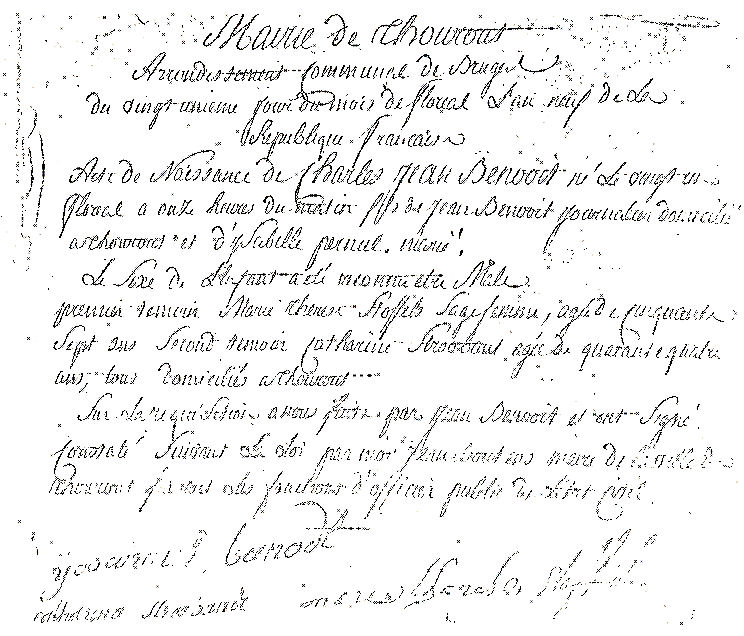 Mairie de Thourout
Arrondissement Communal de Bruges
du vingt unieme jour du mois de floreal L'an neuf de La
Republique Francaise
Acte de Naissance de Charles Jean Benooit né Le vingt un
floreal a onze heures du matin fils de Jean Benooit journalier domicilié
a thourout et d'ysabelle mariés
Le Sexe de L'enfant a été reconnu etre Mâle
premier temoin Marie therese Stoffels Sagefemme, agée de cinquante
Sept ans Second temoin Catharine agée de quarante quatre
ans, tous domiciliés a thourout
Sur la requisition a nous faite par Jean Benooit et ont Signé
Constaté Suivant La Loi par moi Jean maire de la ville de
thourout faisant les fonctions d'officier public de L'etat Civil
Benooit
catharina